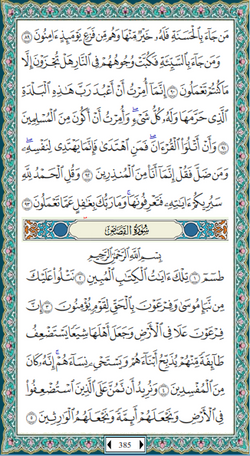 مَن جَآءَ بِٱلْحَسَنَةِ فَلَهُۥ خَيْرٌ مِّنْهَا وَهُم مِّن فَزَعٍ يَوْمَئِذٍ ءَامِنُونَ ٨٩
وَمَن جَآءَ بِٱلسَّيِّئَةِ فَكُبَّتْ وُجُوهُهُمْ فِى ٱلنَّارِ هَلْ تُجْزَوْنَ إِلَّا
مَا كُنتُمْ تَعْمَلُونَ ٩٠ إِنَّمَآ أُمِرْتُ أَنْ أَعْبُدَ رَبَّ هَٰذِهِ ٱلْبَلْدَةِ
ٱلَّذِى حَرَّمَهَا وَلَهُۥ كُلُّ شَىْءٍ ۖ وَأُمِرْتُ أَنْ أَكُونَ مِنَ ٱلْمُسْلِمِينَ
٩١ وَأَنْ أَتْلُوَا۟ ٱلْقُرْءَانَ ۖ فَمَنِ ٱهْتَدَىٰ فَإِنَّمَا يَهْتَدِى لِنَفْسِهِۦ ۖ
وَمَن ضَلَّ فَقُلْ إِنَّمَآ أَنَا۠ مِنَ ٱلْمُنذِرِينَ ٩٢ وَقُلِ ٱلْحَمْدُ لِلَّهِ
سَيُرِيكُمْ ءَايَٰتِهِۦ فَتَعْرِفُونَهَا ۚ وَمَا رَبُّكَ بِغَٰفِلٍ عَمَّا تَعْمَلُونَ ٩٣
سُورَةُ القَصَصِ
بِسْمِ ٱللَّهِ ٱلرَّحْمَٰنِ ٱلرَّحِيمِ
طسٓمٓ ١ تِلْكَ ءَايَٰتُ ٱلْكِتَٰبِ ٱلْمُبِينِ ٢ نَتْلُوا۟ عَلَيْكَ
مِن نَّبَإِ مُوسَىٰ وَفِرْعَوْنَ بِٱلْحَقِّ لِقَوْمٍ يُؤْمِنُونَ ٣ إِنَّ
فِرْعَوْنَ عَلَا فِى ٱلْأَرْضِ وَجَعَلَ أَهْلَهَا شِيَعًا يَسْتَضْعِفُ
طَآئِفَةً مِّنْهُمْ يُذَبِّحُ أَبْنَآءَهُمْ وَيَسْتَحْىِۦ نِسَآءَهُمْ ۚ إِنَّهُۥ كَانَ
مِنَ ٱلْمُفْسِدِينَ ٤ وَنُرِيدُ أَن نَّمُنَّ عَلَى ٱلَّذِينَ ٱسْتُضْعِفُوا۟
فِى ٱلْأَرْضِ وَنَجْعَلَهُمْ أَئِمَّةً وَنَجْعَلَهُمُ ٱلْوَٰرِثِينَ ٥
385